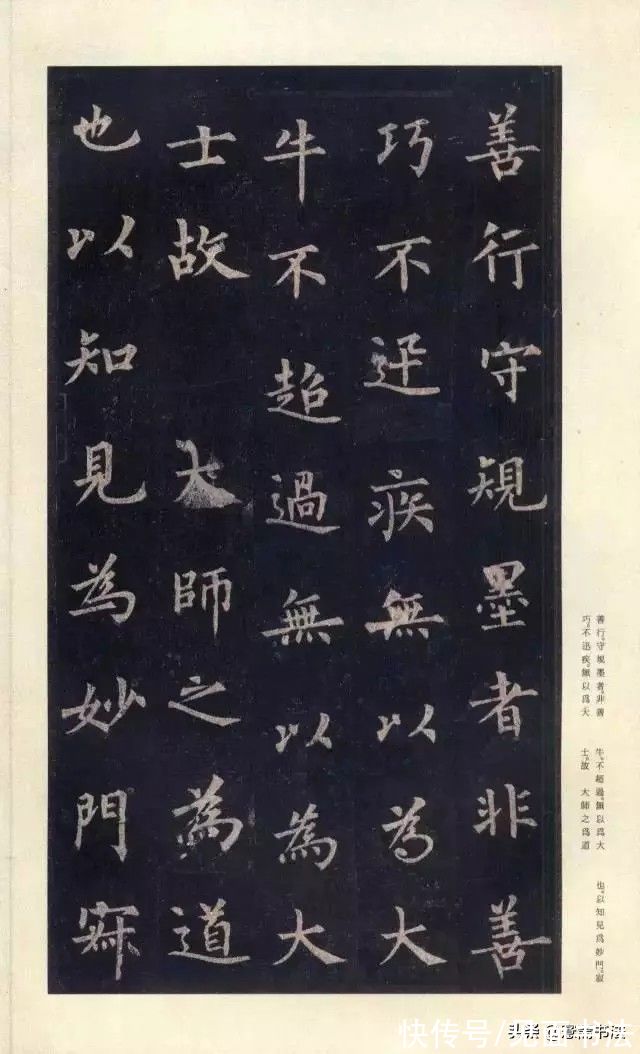 善行守規墨者非善
巧不迅疾無以為大
牛不超過無以為大
士故 大師之為道
也以知見為妙門寂
善行。守規墨者、非善
巧。不迅疾、無以爲大
牛。不超過、無以爲大
士。故 大師之爲道
也。以知見爲妙門。寂
快传号/书法
头条 @书法